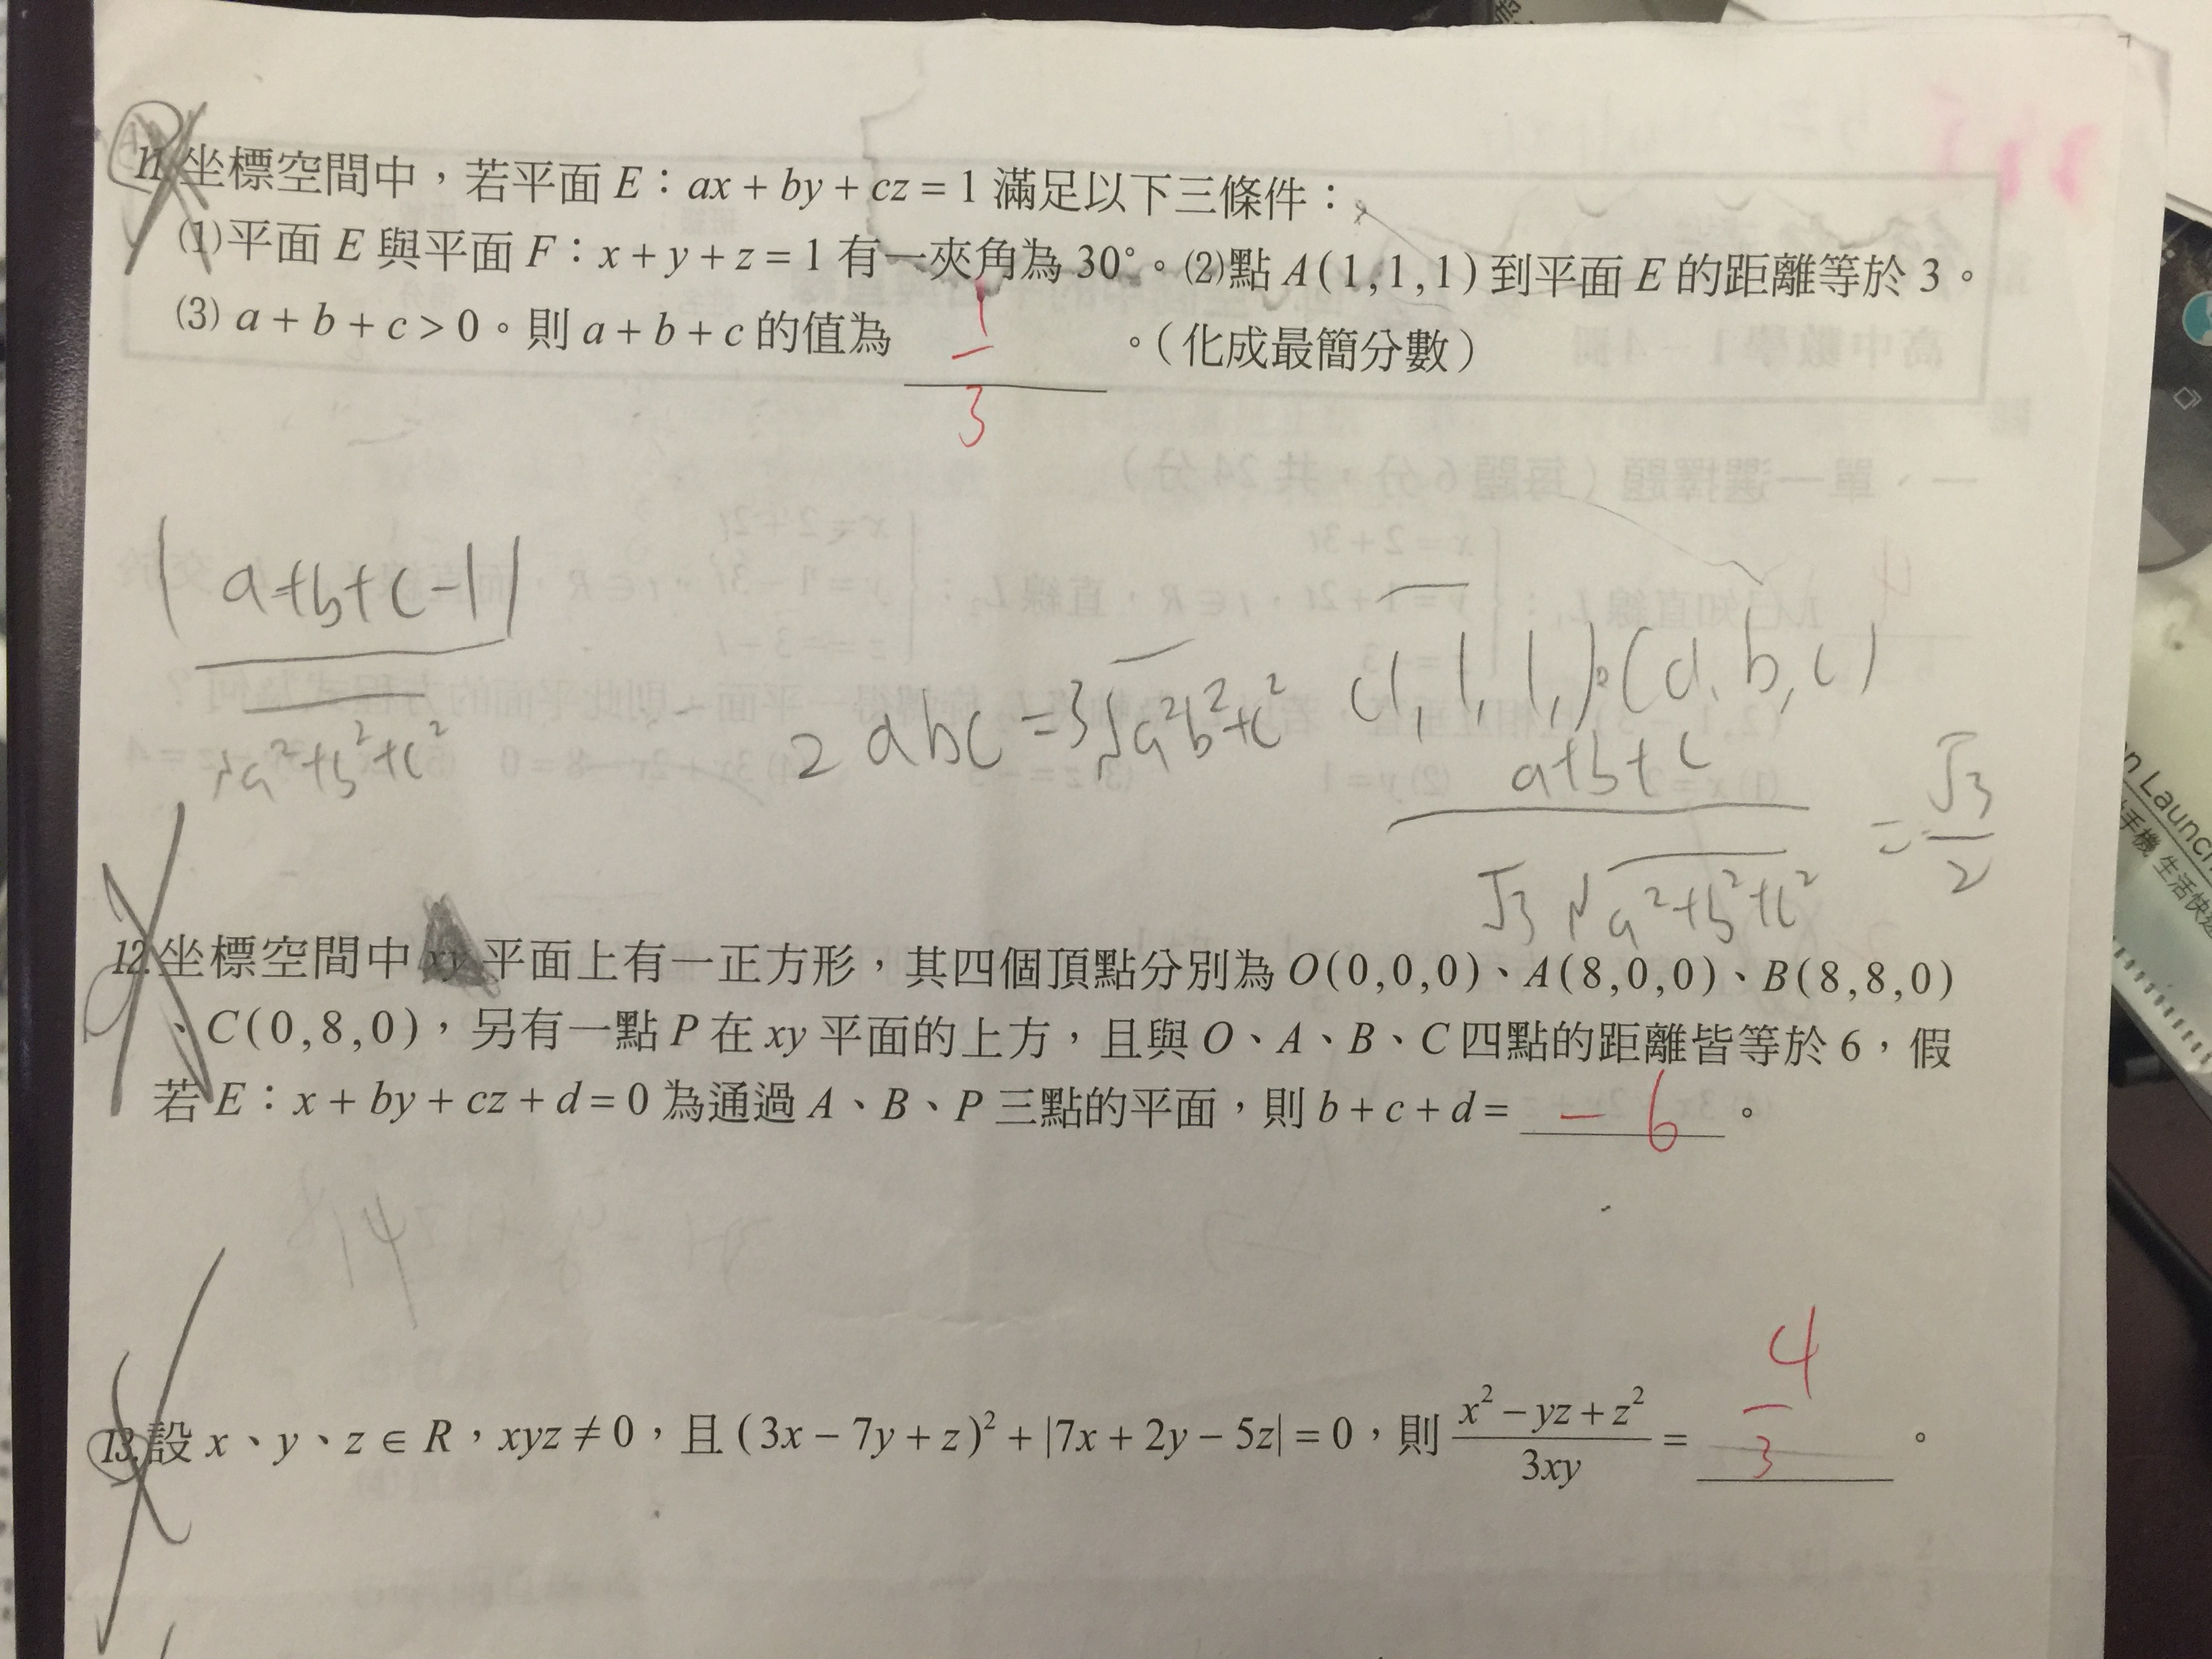 11.坐標空間中，若平面 E：ax + by + cz = 1 滿足以下三條件：
(1)平面 E 與平面 F：x + y + z = 1 有一夾角為 30°。(2)點 A(1,1,1) 到平面 E 的距離等於 3。
(3) a + b + c > 0。則 a + b + c 的值為 1/3 。（化成最簡分數）
|a+b+c-1|
√a²+b²+c²
2 abc = 3√a²b²+c²
(1,1,1,)·(a,b,c)
a+b+c
√3 √a²+b²+c²
= √3/2
12.坐標空間中 xy 平面上有一正方形，其四個頂點分別為 O(0,0,0)、A(8,0,0)、B(8,8,0)
、C(0,8,0)，另有一點 P 在 xy 平面的上方，且與 O、A、B、C 四點的距離皆等於 6，假
若 E：x + by + cz + d = 0 為通過 A、B、P 三點的平面，則 b + c + d = -6 。
13.設 x、y、z ∈ R，xyz ≠ 0，且 (3x − 7y + z)² + |7x + 2y − 5z| = 0，則 (x² − yz + z²)/3xy = 4/3 。
Launch
手機 生活快